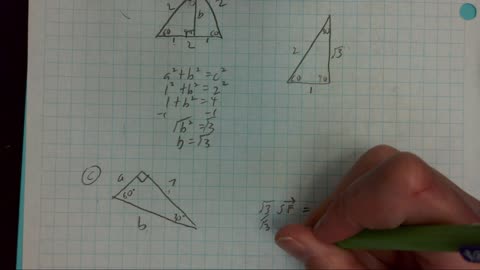 2 b 2
60 90 60
1 1
2
30
2 √3
60 90
1
a² + b² = c²
1² + b² = 2²
1 + b² = 4
-1 -1
√b² = √3
b = √3
C
a 7
60° 30°
b
√3 =
√3